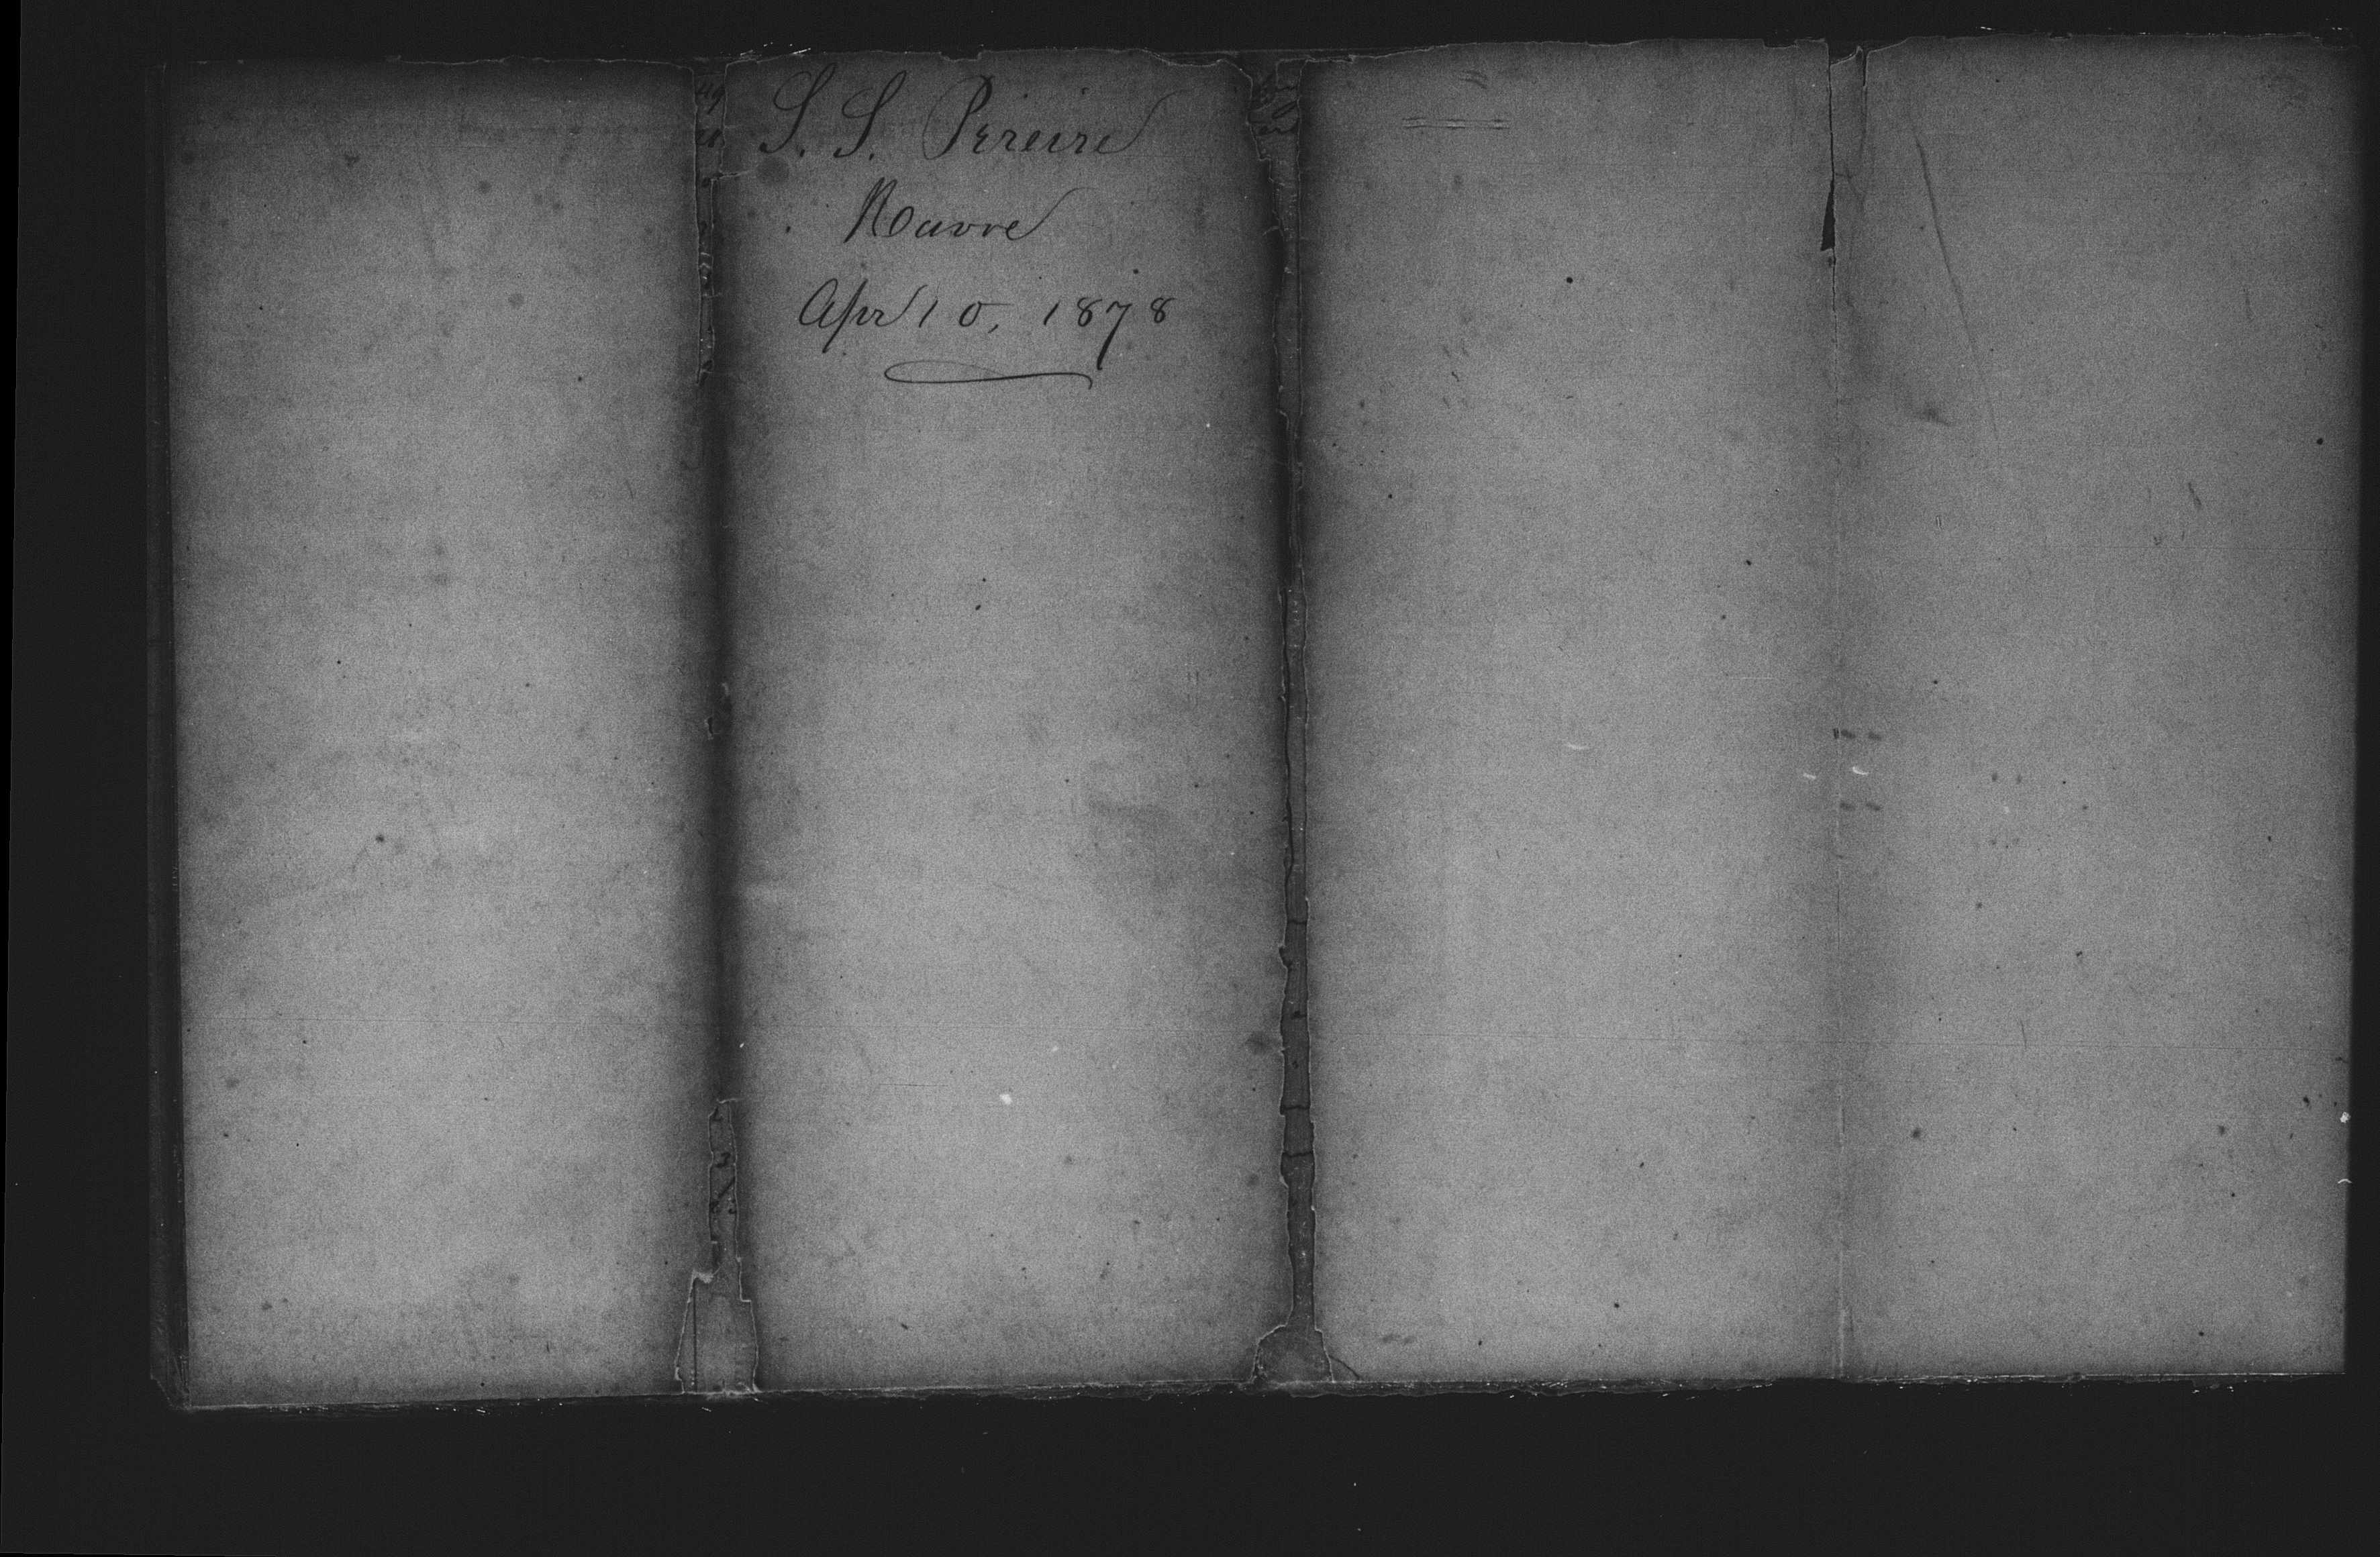 S. S. Pereire
Havre
Apr 10, 1878